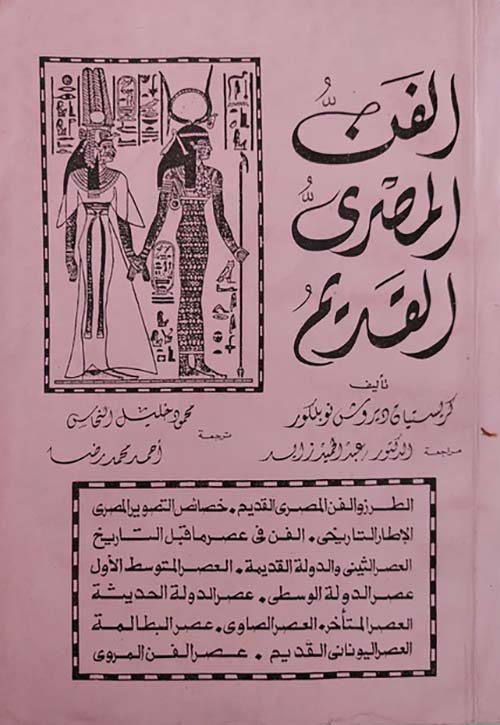 الفن
المصرى
القديم
تأليف
كريستيان ديروش نوبلكور
ترجمة
محمود خليل النحاس
أحمد محمد رضا
مراجعة
الدكتور/ عبد الحميد زايد
الطرز والفن المصرى القديم. خصائص التصوير المصرى
الإطار التاريخى. الفن فى عصر ما قبل التاريخ
العصر الثينى والدولة القديمة. العصر المتوسط الأول
عصر الدولة الوسطى. عصر الدولة الحديثة
العصر المتأخر. العصر الصاوى. عصر البطالمة
العصر اليونانى القديم. عصر الفن المروى